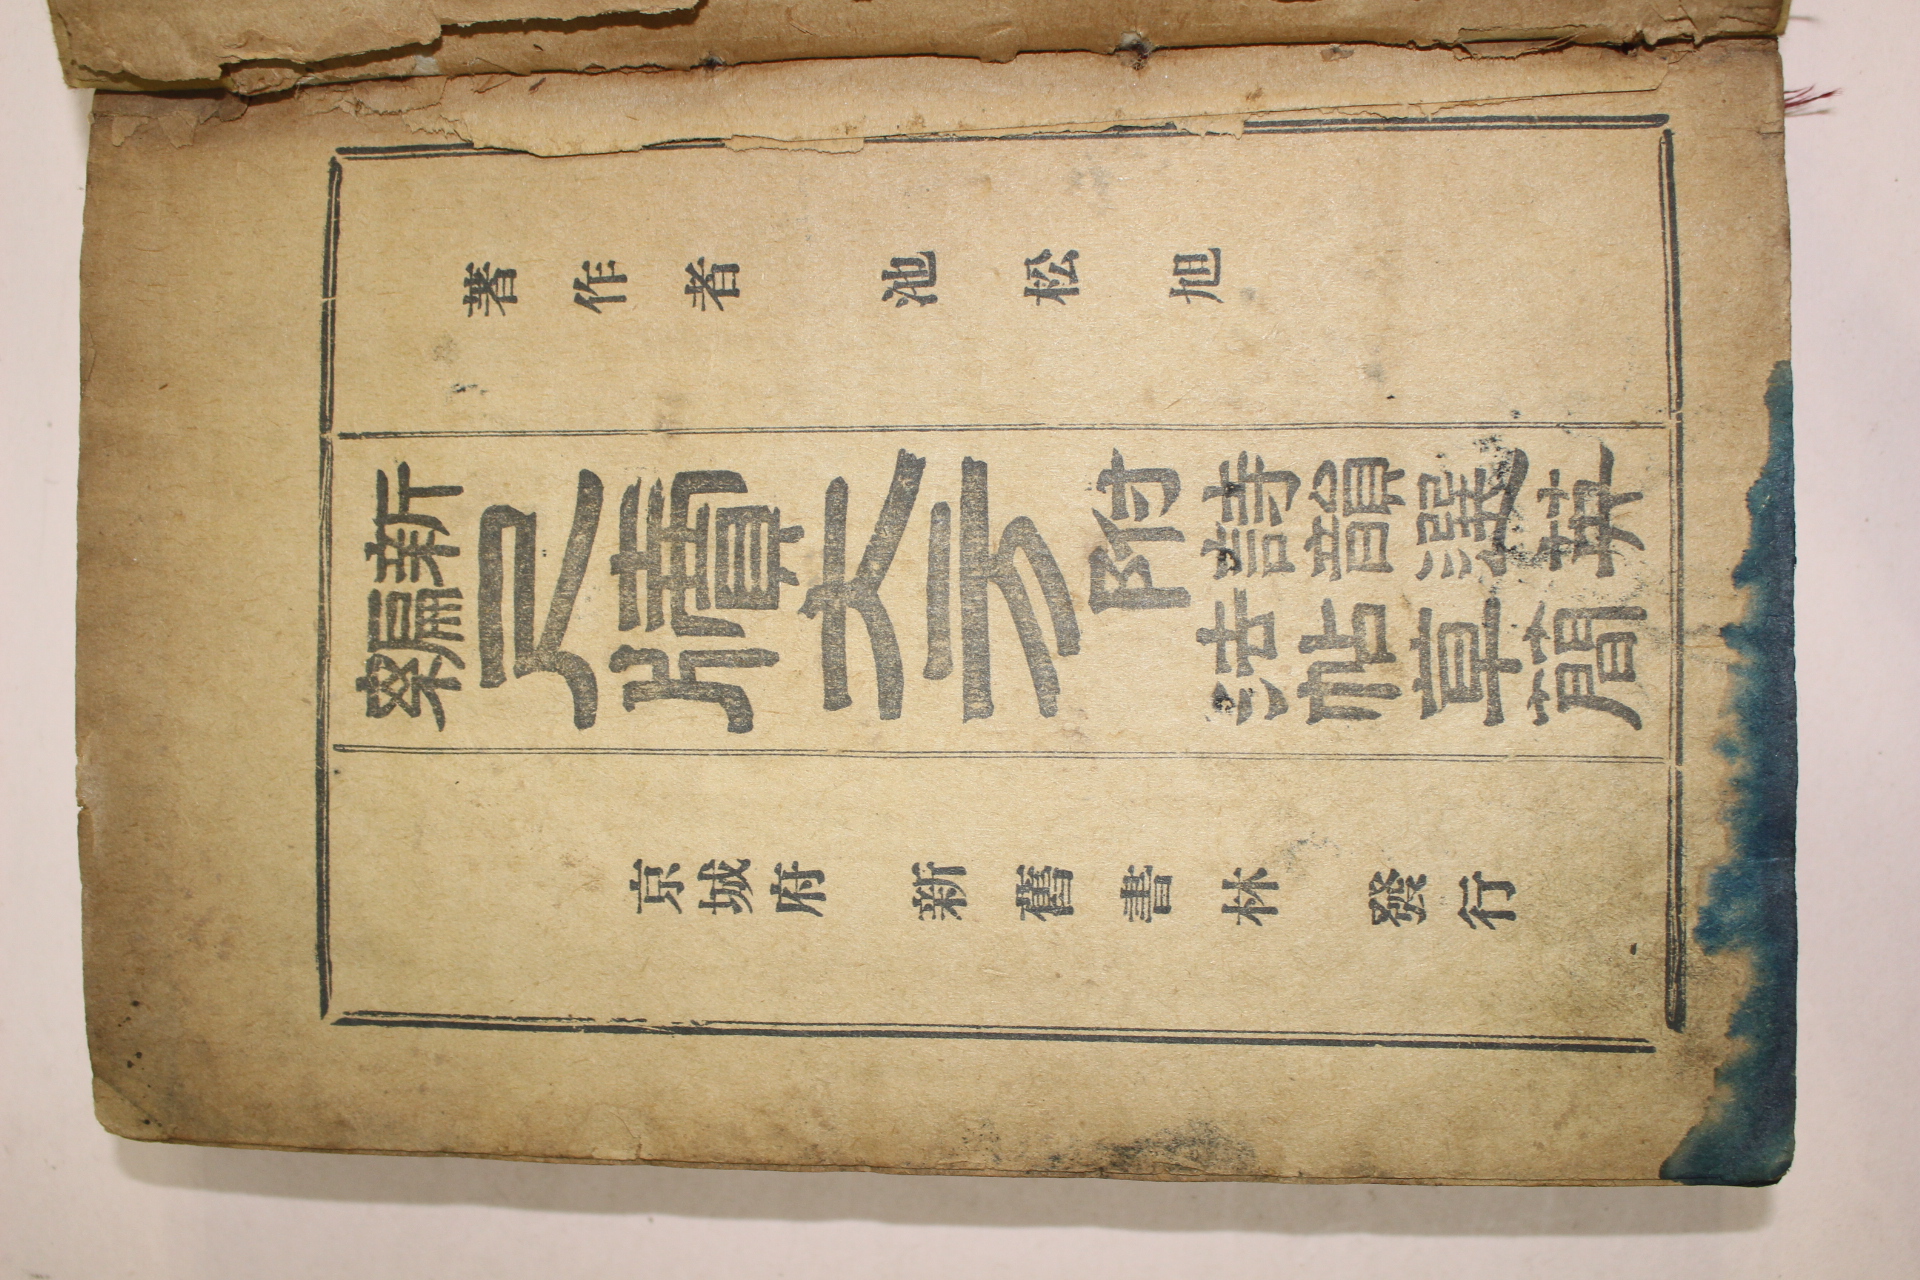 著作者 池松旭
新編尺牘大方附
詩韻選英
法帖章簡
京城府 新舊書林 發行